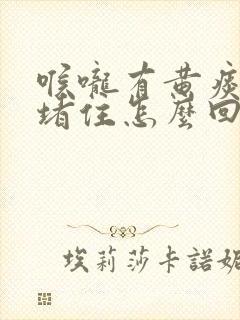 喉嚨有黃痰
堵住怎麼回
埃莉莎卡諾妮